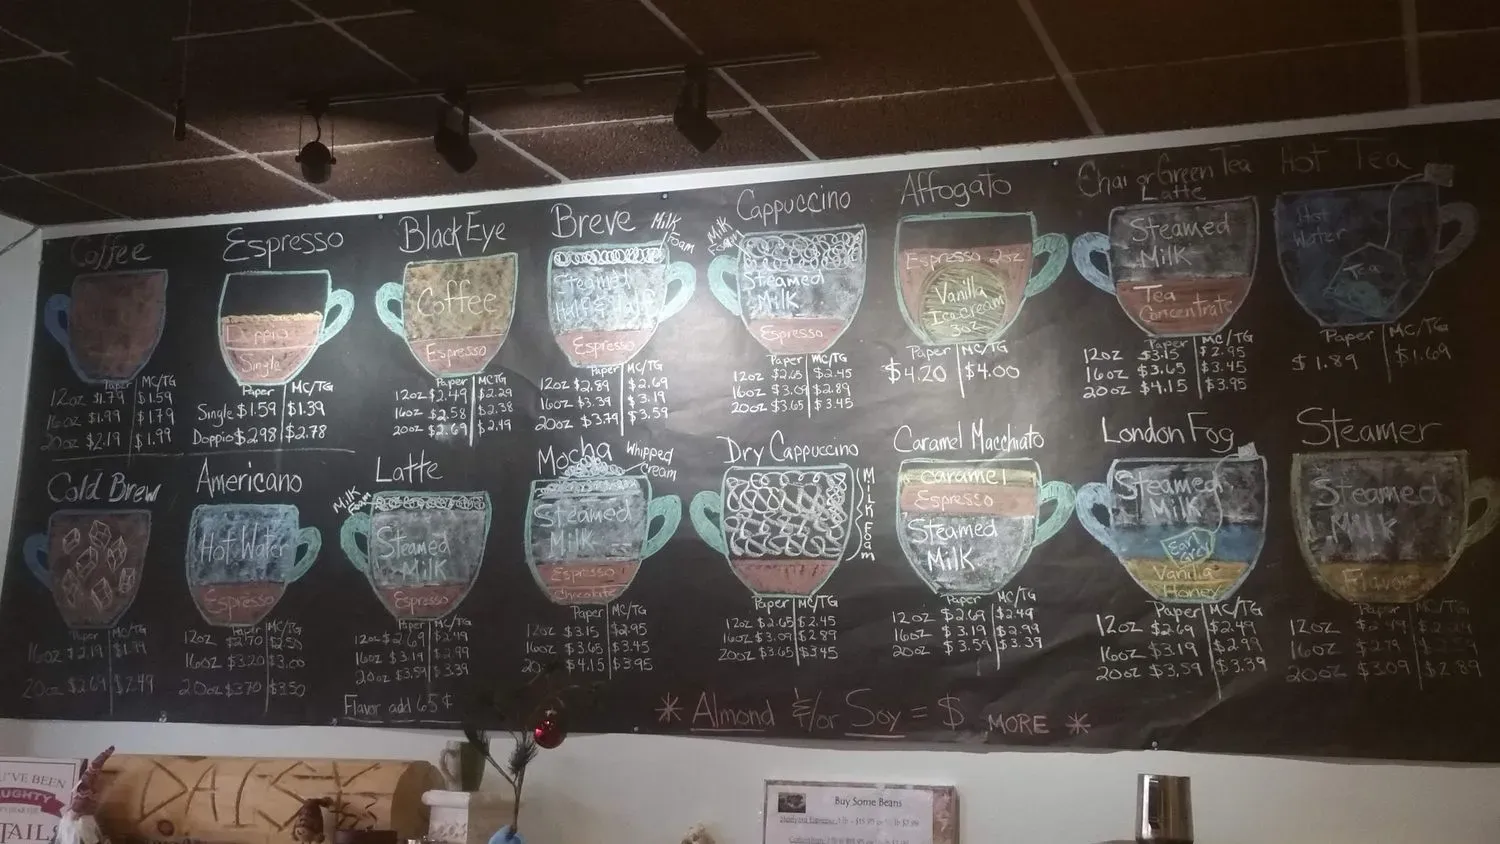 Coffee
Paper MC/TG
12oz $1.79 $1.59
16oz $1.99 $1.79
20oz $2.19 $1.99
Espresso
Doppio
Single
Paper MC/TG
Single $1.59 $1.39
Doppio $2.98 $2.78
Black Eye
Coffee
Espresso
Paper MCTG
12oz $2.49 $2.29
16oz $2.58 $2.38
20oz $2.69 $2.49
Breve
Milk
Foam
Steamed
Half & Half
Espresso
Paper MC/TG
12oz $2.89 $2.69
16oz $3.39 $3.19
20oz $3.79 $3.59
Cappuccino
Milk
Foam
Steamed
Milk
Espresso
Paper MC/TG
12oz $2.65 $2.45
16oz $3.09 $2.89
20oz $3.65 $3.45
Affogato
Espresso 2oz
Vanilla
Ice cream
3oz
Paper MC/TG
$4.20 $4.00
Chai or Green Tea
Latte
Steamed
Milk
Tea
Concentrate
Paper MC/TG
12oz $3.15 $2.95
16oz $3.65 $3.45
20oz $4.15 $3.95
Hot Tea
Hot
Water
Tea
Paper MC/TG
$1.89 $1.69
Cold Brew
Paper MC/TG
16oz $2.19 $1.99
20oz $2.69 $2.49
Americano
Hot Water
Espresso
Paper MC/TG
12oz $2.70 $2.50
16oz $3.20 $3.00
20oz $3.70 $3.50
Latte
Milk
Foam
Steamed
Milk
Espresso
Paper MC/TG
12oz $2.69 $2.49
16oz $3.19 $2.99
20oz $3.59 $3.39
Flavor add 65¢
Mocha
Whipped
Cream
Steamed
Milk
Espresso
Chocolate
Paper MC/TG
12oz $3.15 $2.95
16oz $3.65 $3.45
20 $4.15 $3.95
Dry Cappuccino
Milk Foam
Paper MC/TG
12oz $2.65 $2.45
16oz $3.09 $2.89
20oz $3.65 $3.45
Caramel Macchiato
caramel
Espresso
Steamed
Milk
Paper MC/TG
12oz $2.69 $2.49
16oz $3.19 $2.99
20oz $3.59 $3.39
London Fog
Steamed
Milk
Earl
Grey
Vanilla
Honey
Paper MC/TG
12oz $2.69 $2.49
16oz $3.19 $2.99
20oz $3.59 $3.39
Steamer
Steamed
Milk
Flavor
Paper MC/TG
12oz
16oz $2.79
20oz $3.09 $2.89
* Almond &/or Soy = $ MORE *
I'VE BEEN
TAILS
Buy Some Beans